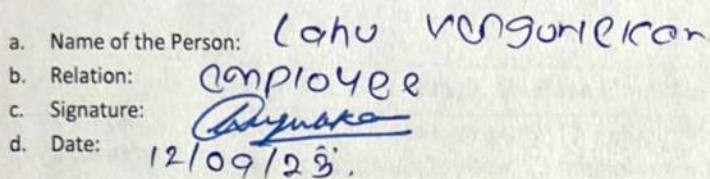 a. Name of the Person: Lahu Vengurlekar
b. Relation: employee
c. Signature:
d. Date: 12/09/23.